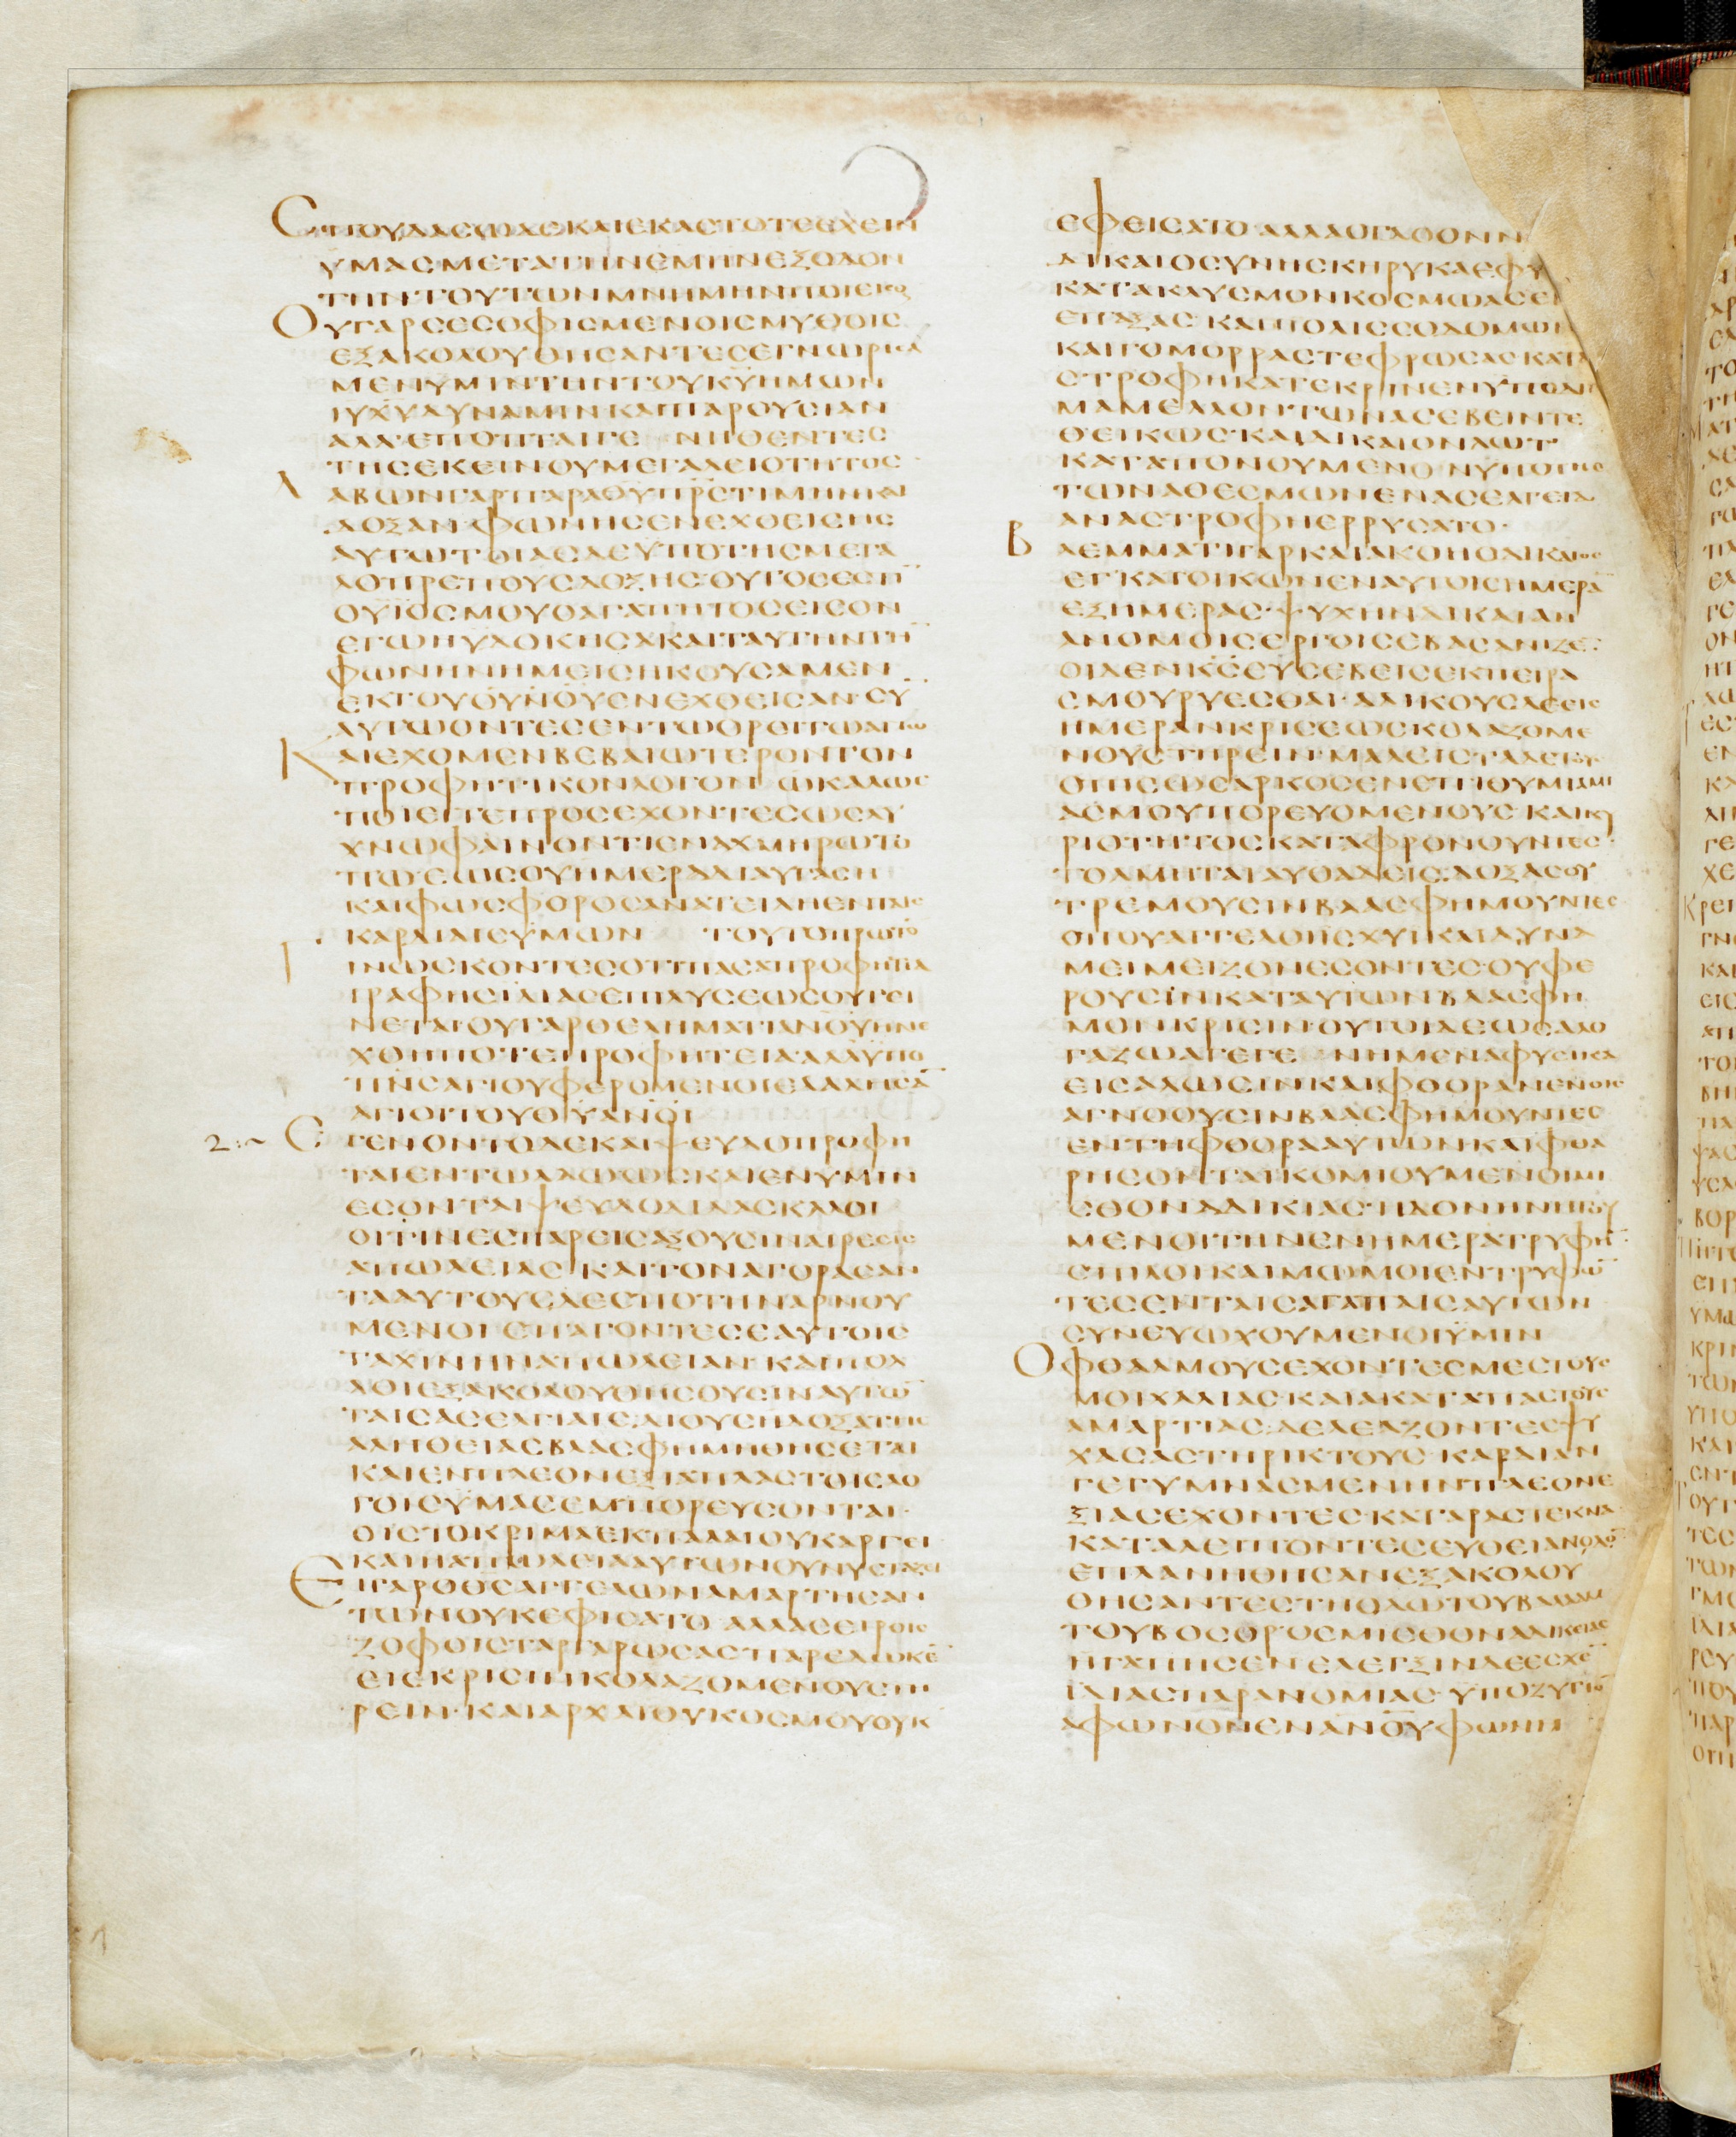 ϹΠΟΥΔΑϹΩΔΕΚΑΙΕΚΑϹΤΟΤΕΕΧΕΙΝ
ΥΜΑϹΜΕΤΑΤΗΝΕΜΗΝΕΞΟΔΟΝ
ΤΗΝΤΟΥΤΩΝΜΝΗΜΗΝΠΟΙΕΙϹΘ
ΟΥΓΑΡϹΕϹΟΦΙϹΜΕΝΟΙϹΜΥΘΟΙϹ
ΕΞΑΚΟΛΟΥΘΗϹΑΝΤΕϹΕΓΝΩΡΙϹΑ
ΜΕΝΥΜΙΝΤΗΝΤΟΥΚΥΗΜΩΝ
ΙΥΧΥΔΥΝΑΜΙΝΚΑΙΠΑΡΟΥϹΙΑΝ
ΑΛΛΕΠΟΠΤΑΙΓΕ ΝΗΘΕΝΤΕϹ
ΤΗϹΕΚΕΙΝΟΥΜΕΓΑΛΕΙΟΤΗΤΟϹ
ΛΑΒΩΝΓΑΡΠΑΡΑΘΥΠΡϹΤΙΜΗΝΚΑΙ
ΔΟΞΑΝ·ΦΩΝΗϹΕΝΕΧΘΕΙϹΗϹ
ΑΥΤΩΤΟΙΑϹΔΕΥΠΟΤΗϹΜΕΓΑ
ΛΟΠΡΕΠΟΥϹΔΟΞΗϹ·ΟΥΤΟϹΕϹΤΙ̅
ΟΥΙΟϹΜΟΥΟΑΓΑΠΗΤΟϹΕΙϹΟΝ
ΕΓΩΗΥΔΟΚΗϹΑΚΑΙΤΑΥΤΗΝΤΗ̅
ΦΩΝΗΝΗΜΕΙϹΗΚΟΥϹΑΜΕΝ
ΕΚΤΟΥΟΥΝΟΥϹΝΕΧΘΕΙϹΑΝ·ϹΥ̅
ΑΥΤΩΟΝΤΕϹΕΝΤΩΟΡΕΙΤΩΑΓΙΩ
ΚΑΙΕΧΟΜΕΝΒΕΒΑΙΩΤΕΡΟΝΤΟΝ
ΠΡΟΦΗΤΙΚΟΝΛΟΓΟΝ ΩΚΑΛΩϹ
ΠΟΙΕΙΤΕΠΡΟϹΕΧΟΝΤΕϹΩϹΛΥ
ΧΝΩΦΑΙΝΟΝΤΙΕΝΑΥΧΜΗΡΩΤΟ
ΠΩ·ΕΩϹΟΥΗΜΕΡΑΔΙΑΥΓΑϹΗ
ΚΑΙΦΩϹΦΟΡΟϹΑΝΑΤΕΙΛΗΕΝΤΑΙϹ
ΚΑΡΔΙΑΙϹΥΜΩΝ ΤΟΥΤΟΠΡΩΤΟ
ΓΙΝΩϹΚΟΝΤΕϹΟΤΙΠΑϹΑΠΡΟΦΗΤΙΑ
ΓΡΑΦΗϹΙΔΙΑϹΕΠΙΛΥϹΕΩϹΟΥΓΕΙ
ΝΕΤΑΙ·ΟΥΓΑΡΘΕΛΗΜΑΤΙΑΝΟΥΗΝΕ
ΧΘΗΠΟΤΕΠΡΟΦΗΤΕΙΑ·ΑΛΛΥΠΟ
ΠΝϹΑΓΙΟΥΦΕΡΟΜΕΝΟΙΕΛΑΛΗϹΑ̅
ΑΓΙΟΙΤΟΥΘΥΑΝΟΙ
2:~ ΕΓΕΝΟΝΤΟΔΕΚΑΙΨΕΥΔΟΠΡΟΦΗ
ΤΑΙΕΝΤΩΛΑΩΩϹΚΑΙΕΝΥΜΙΝ
ΕϹΟΝΤΑΙΨΕΥΔΟΔΙΔΑϹΚΑΛΟΙ
ΟΙΤΙΝΕϹΠΑΡΕΙϹΑΞΟΥϹΙΝΑΙΡΕϹΕΙϹ
ΑΠΩΛΕΙΑϹ ΚΑΙΤΟΝΑΓΟΡΑϹΑΝ
ΤΑΑΥΤΟΥϹΔΕϹΠΟΤΗΝΑΡΝΟΥ
ΜΕΝΟΙ ΕΠΑΓΟΝΤΕϹΕΑΥΤΟΙϹ
ΤΑΧΙΝΗΝΑΠΩΛΕΙΑΝ·ΚΑΙΠΟΛ
ΛΟΙΕΞΑΚΟΛΟΥΘΗϹΟΥϹΙΝΑΥΤΩ̅
ΤΑΙϹΑϹΕΛΓΙΑΙϹΔΙΟΥϹΗΔΟΞΑΤΗϹ
ΑΛΗΘΕΙΑϹΒΛΑϹΦΗΜΗΘΗϹΕΤΑΙ
ΚΑΙΕΝΠΛΕΟΝΕΞΙΑΠΛΑϹΤΟΙϹΛΟ
ΓΟΙϹΥΜΑϹΕΜΠΟΡΕΥϹΟΝΤΑΙ·
ΟΙϹΤΟΚΡΙΜΑΕΚΠΑΛΑΙΟΥΚΑΡΓΕΙ
ΚΑΙΗΑΠΩΛΕΙΑΑΥΤΩΝΟΥΝΥϹΤΑΖΕΙ
ΕΙΓΑΡΟΘϹΑΓΓΕΛΩΝΑΜΑΡΤΗϹΑΝ
ΤΩΝΟΥΚΕΦΙϹΑΤΟ ΑΛΛΑϹΕΙΡΟΙϹ
ΖΟΦΟΙϹΤΑΡΤΑΡΩϹΑϹΠΑΡΕΔΩΚΕ̅
ΕΙϹΚΡΙϹΙΝΚΟΛΑΖΟΜΕΝΟΥϹΤΗ
ΡΕΙΝ·ΚΑΙΑΡΧΑΙΟΥΚΟϹΜΟΥΟΥΚ
ΕΦΕΙϹΑΤΟ ΑΛΛΑΟΓΔΟΟΝΝ
ΔΙΚΑΙΟϹΥΝΗϹΚΗΡΥΚΑΕΦΥ
ΚΑΤΑΚΛΥϹΜΟΝΚΟϹΜΩΑϹΕ
ΕΠΑΞΑϹ·ΚΑΙΠΟΛΙϹϹΟΔΟΜΩΝ
ΚΑΙΓΟΜΟΡΡΑϹΤΕΦΡΩϹΑϹΚΑΤΑ
ϹΤΡΟΦΗΚΑΤΕΚΡΙΝΕΝΥΠΟΔΙ
ΜΑΜΕΛΛΟΝΤΩΝΑϹΕΒΕΙΝΤΕ
ΘΕΙΚΩϹ·ΚΑΙΔΙΚΑΙΟΝΛΩΤ
ΚΑΤΑΠΟΝΟΥΜΕΝΟΝΥΠΟΤΗϹ
ΤΩΝΑΘΕϹΜΩΝΕΝΑϹΕΛΓΕΙΑ
ΑΝΑϹΤΡΟΦΗϹΕΡΡΥϹΑΤΟ·
ΒΛΕΜΜΑΤΙΓΑΡΚΑΙΑΚΟΗΟΔΙΚΑΙΟϹ
ΕΓΚΑΤΟΙΚΩΝΕΝΑΥΤΟΙϹΗΜΕΡΑ̅
ΕΞΗΜΕΡΑϹ·ΨΥΧΗΝΔΙΚΑΙΑΝ
ΑΝΟΜΟΙϹΕΡΓΟΙϹΕΒΑϹΑΝΙΖΕ
ΟΙΔΕΝΚϹΕΥϹΕΒΕΙϹΕΚΠΕΙΡΑ
ϹΜΟΥΡΥΕϹΘΑΙ·ΑΔΙΚΟΥϹΔΕΕΙϹ
ΗΜΕΡΑΝΚΡΙϹΕΩϹΚΟΛΑΖΟΜΕ
ΝΟΥϹΤΗΡΕΙΝ·ΜΑΛΕΙϹΤΑΔΕΤΟΥϹ
ΟΠΙϹΩϹΑΡΚΟϹΕΝΕΠΙΘΥΜΙΑΜΙ
ΑϹΜΟΥΠΟΡΕΥΟΜΕΝΟΥϹ·ΚΑΙΚΥ
ΡΙΟΤΗΤΟϹΚΑΤΑΦΡΟΝΟΥΝΤΕϹ·
ΤΟΛΜΗΤΑΙΑΥΘΑΔΕΙϹ·ΔΟΞΑϹΟΥ
ΤΡΕΜΟΥϹΙΝΒΛΑϹΦΗΜΟΥΝΤΕϹ
ΟΠΟΥΑΓΓΕΛΟΙΙϹΧΥΙΚΑΙΔΥΝΑ
ΜΕΙΜΕΙΖΟΝΕϹΟΝΤΕϹ·ΟΥΦΕ
ΡΟΥϹΙΝΚΑΤΑΥΤΩΝΒΛΑϹΦΗ
ΜΟΝΚΡΙϹΙΝ·ΟΥΤΟΙΔΕΩϹΑΛΟ
ΓΑΖΩΑΓΕΓΕ ΝΗΜΕΝΑΦΥϹΙΚΑ
ΕΙϹΑΛΩϹΙΝΚΑΙΦΘΟΡΑΝΕΝΟΙϹ
ΑΓΝΟΟΥϹΙΝΒΛΑϹΦΗΜΟΥΝΤΕϹ
ΕΝΤΗΦΘΟΡΑΑΥΤΩΝΚΑΙΦΘΑ
ΡΗϹΟΝΤΑΙΚΟΜΙΟΥΜΕΝΟΙΜΙ
ϹΘΟΝΑΔΙΚΙΑϹ·ΗΔΟΝΗΝΗΓΟΥ
ΜΕΝΟΙΤΗΝΕΝΗΜΕΡΑΤΡΥΦΗ̅
ϹΠΙΛΟΙΚΑΙΜΩΜΟΙΕΝΤΡΥΦΩ̅
ΤΕϹΕΝΤΑΙϹΑΓΑΠΑΙϹΑΥΤΩΝ
ϹΥΝΕΥΩΧΟΥΜΕΝΟΙΥΜΙΝ
ΟΦΘΑΛΜΟΥϹΕΧΟΝΤΕϹΜΕϹΤΟΥϹ
ΜΟΙΧΑΛΙΑϹΚΑΙΑΚΑΤΑΠΑϹΤΟΥϹ
ΑΜΑΡΤΙΑϹ·ΔΕΛΕΑΖΟΝΤΕϹΨΥ
ΧΑϹΑϹΤΗΡΙΚΤΟΥϹ·ΚΑΡΔΙΑΝ
ΓΕΓΥΜΝΑϹΜΕΝΗΝΠΛΕΟΝΕ
ΞΙΑϹΕΧΟΝΤΕϹ·ΚΑΤΑΡΑϹΤΕΚΝΑ
ΚΑΤΑΛΕΙΠΟΝΤΕϹΕΥΘΕΙΑΝΟΔΟ̅
ΕΠΛΑΝΗΘΗϹΑΝΕΞΑΚΟΛΟΥ
ΘΗϹΑΝΤΕϹΤΗΟΔΩΤΟΥΒΑΛΑΑΜ
ΤΟΥΒΟϹΟΡΟϹΜΙϹΘΟΝΑΔΙΚΕΙΑϹ
ΗΓΑΠΗϹΕΝΕΛΕΓΞΙΝΔΕΕϹΧΕ̅
ΙΔΙΑϹΠΑΡΑΝΟΜΙΑϹ·ΥΠΟΖΥΓΙΟ̅
ΑΦΩΝΟΝΕΝΑΝΟΥΦΩΝΗ